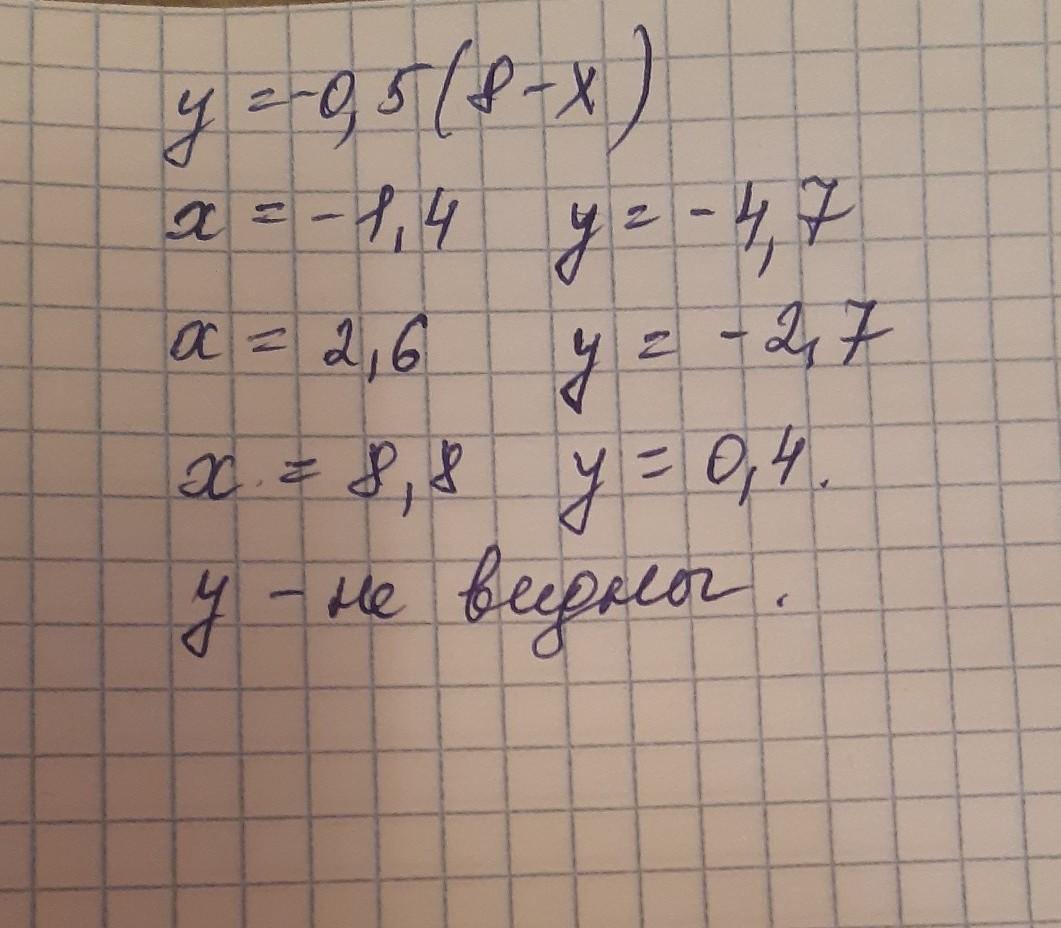 y = -0,5(8-x)
x = -1,4 y = -4,7
x = 2,6 y = -2,7
x = 8,8 y = 0,4.
y - не видны.